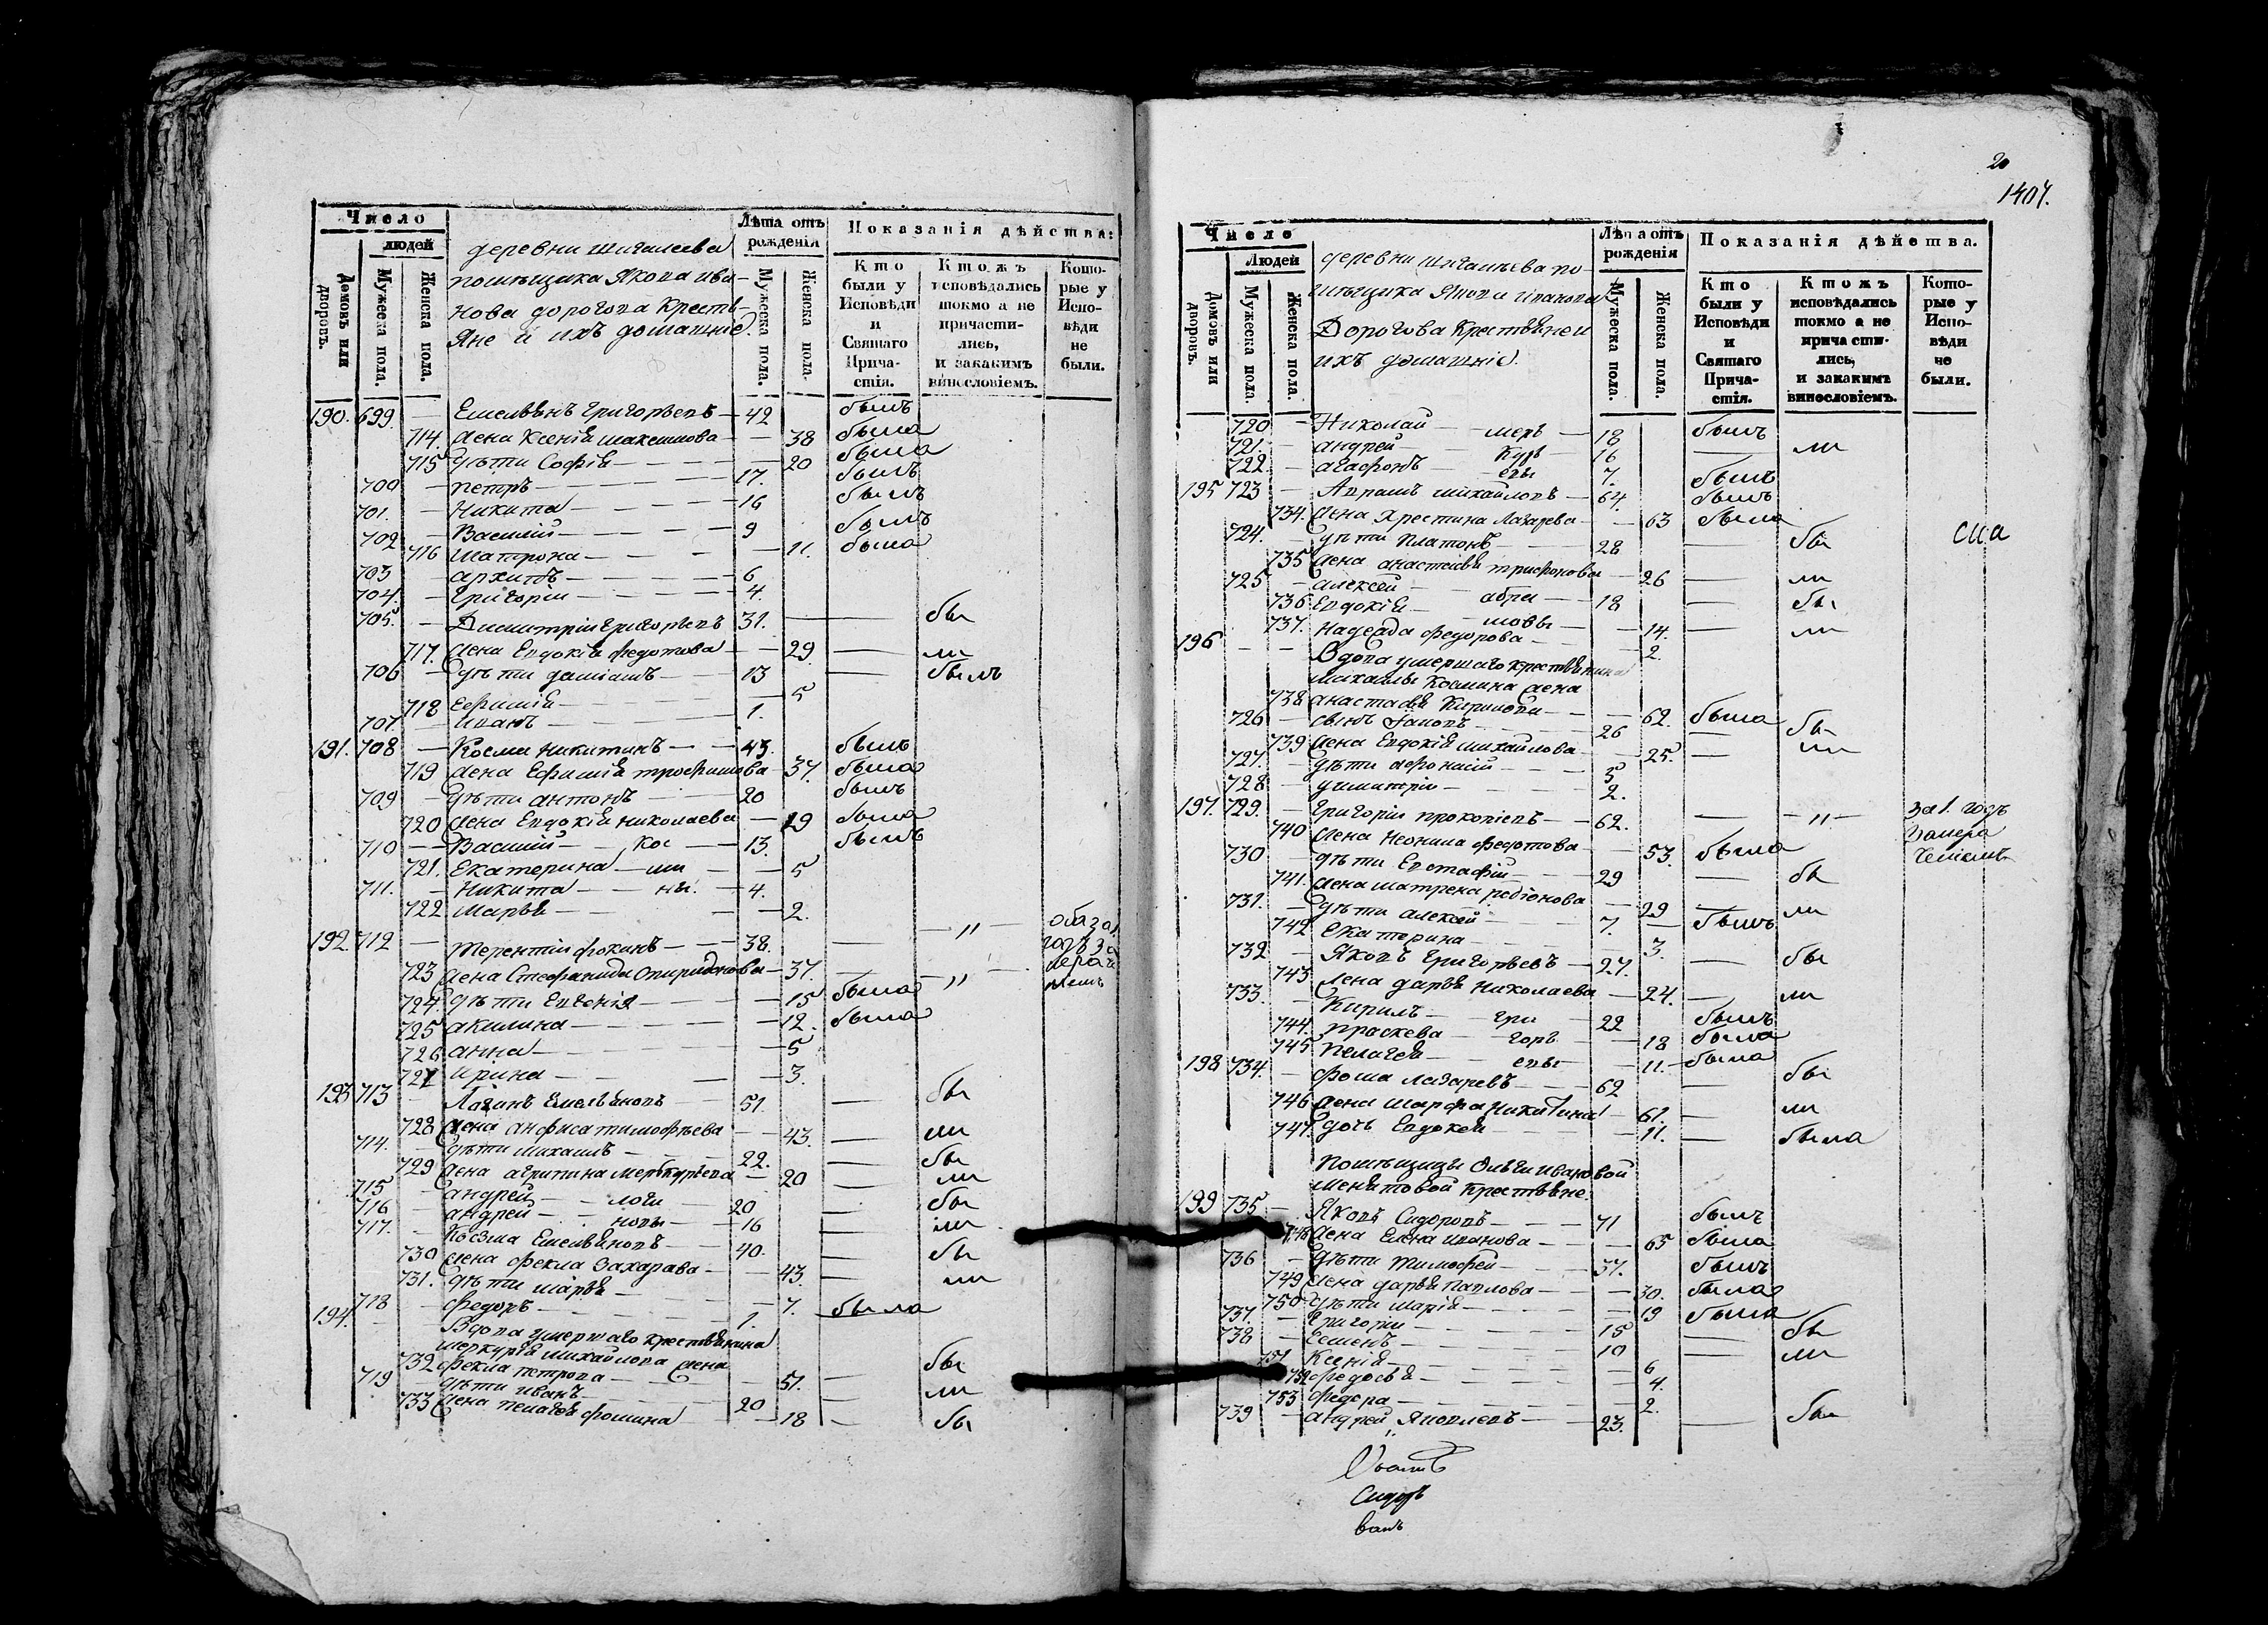 Число
людей
Домовъ или дворовъ.
Мужеска пола.
Женска пола.
деревни Шигалеева
помѣщика Якова Ива-
нова дорогова Крестья-
яне и ихъ домашніе.
Лѣта отъ рожденія
Мужеска пола.
Женска пола.
Показанія дѣйства:
Кто были у Исповѣди и Святаго Прича-стія.
Кто жъ исповѣдались токмо а не причасти-лись, и закакимъ винословіемъ.
Кото-рые у Испо-вѣди не были.
190. 699. — Емельянъ Григорьевъ — 42 былъ
714. жена Ксенія Максимова — 38 была
715 дѣти Софія — 20 была
700 — петръ — 17. былъ
701. — Никита — 16 былъ
702 — Василій — 9 былъ
716 Матрона — 11. была
703 — архипъ — 6
704. — Григорій — 4.
705. — Димитрій григорьевъ 31. — бы
717. жена Евдокія федотова — 29 — ли
706 — дѣти даміанъ — 13 — былъ
718 Ефимія — 5
707. — Иванъ — 1.
191. 708 — Косма никитинъ — 43. былъ
719 жена Ефимія трофимова — 37. была
709 — дѣти антонъ — 20 былъ
720 жена Евдокія николаева — 19 была
710 — Василій — Кос — 13. былъ
721. Екатерина — ми — 5
711. — Никита — ны. — 4.
722 Марья — 2.
192. 712 — Терентій фокинъ — 38. — "
723 жена Стефанида Спиридонова — 37. — "
724. дѣти Евгенія — 15 была
725 акилина — 12. была
726 анна — 5
727 Ирина — 3.
193 713 — Логинъ Емельяновъ — 51. — бы
728 жена анфиса тимофѣева — 43. — ли
714. — дѣти михаилъ — 22. — бы
729 жена агрипина меркурьева — 20 — ли
715 — андрей — логи — 20 — бы
716 — андрей — новы — 16 — ли
717. — Козма Емельяновъ — 40. — бы
730 жена фекла Захарова — 43. — ли
731. дѣти марья — 7. — была
718 — федоръ — 1.
194. — Вдова умершаго крестьянина
меркурія михайлова жена
732 фекла петрова — 51. — бы
719 дѣти иванъ — 20 — ли
733 жена пелагея фомина — 18 — бы
20
1407.
Число
Людей
Домовъ или дворовъ.
Мужеска пола.
Женска пола.
деревни шигалѣева по-
мѣщика Якова Иванова
Дорогова Крестьяне и
ихъ домашніе.
Лѣта отъ рожденія
Мужеска пола.
Женска пола.
Показанія дѣйства.
Кто были у Исповѣди и Святаго Прича-стія.
Кто жъ исповѣдались токмо а не прича сти-лись, и закакимъ винословіемъ.
Кото-рые у Испо-вѣди не были.
720 — Николай — мерь — 18 былъ
721. — андрей — Курь — 16 — ли
722 — агафонъ — евы 7. былъ
195 723 — Аврамъ михайловъ — 64. былъ
734. жена Христина Лазарева — 63 была
724. — дѣти Платонъ — 28 — бы
735 жена анастасія трифонова — 26 — ли
725 — алексей — абра — 18 — бы
736 Евдокія — мовы — 14. — ли
737. надежда федорова — 2.
196 — Вдова умершаго крестьянина
михаилы Космина жена
738 анастасія Кирилова — 62. была
726 — сынъ — 26 — бы
739 жена Евдокія михайлова — 25. — ли
727. — дѣти афонасій — 5
728 — димитрій — 2.
197. 729. — Григорій прокопіевъ — 62. — "
740 жена Неонила федотова — 53. была
730 — дѣти Евстафій — 29 — бы
741. жена матрена родіонова — 29 — ли
731. — дѣти алексей — 7. — былъ
742 Екатерина — 3.
732 — Яковъ Григорьевъ — 27. — бы
743 жена дарья николаева — 24. — ли
733. — Кирилъ — гри — 22 былъ
744. праскева — горь — 18 была
745 Пелагея — евы — 11. — была
198 734. — фома лазаревъ — 62 — бы
746 жена марфа никитина — 61. — ли
747. дочь Евдокея — 11. — была
помѣщицы Ольги ивановой
крестьяне.
199 735 — Яковъ Сидоровъ — 71 былъ
748 жена Елена иванова — 65 была
736 — дѣти Тимофей — 37. былъ
749 жена дарья Павлова — 30. была
750 дѣти марія — 19 была
737. — Григорій — 15 — бы
738 — Семенъ — 10 — ли
751 Ксенія — 6
752 федосья — 4.
753 федора — 2.
739 — андрей Яковлевъ — 23. — бы